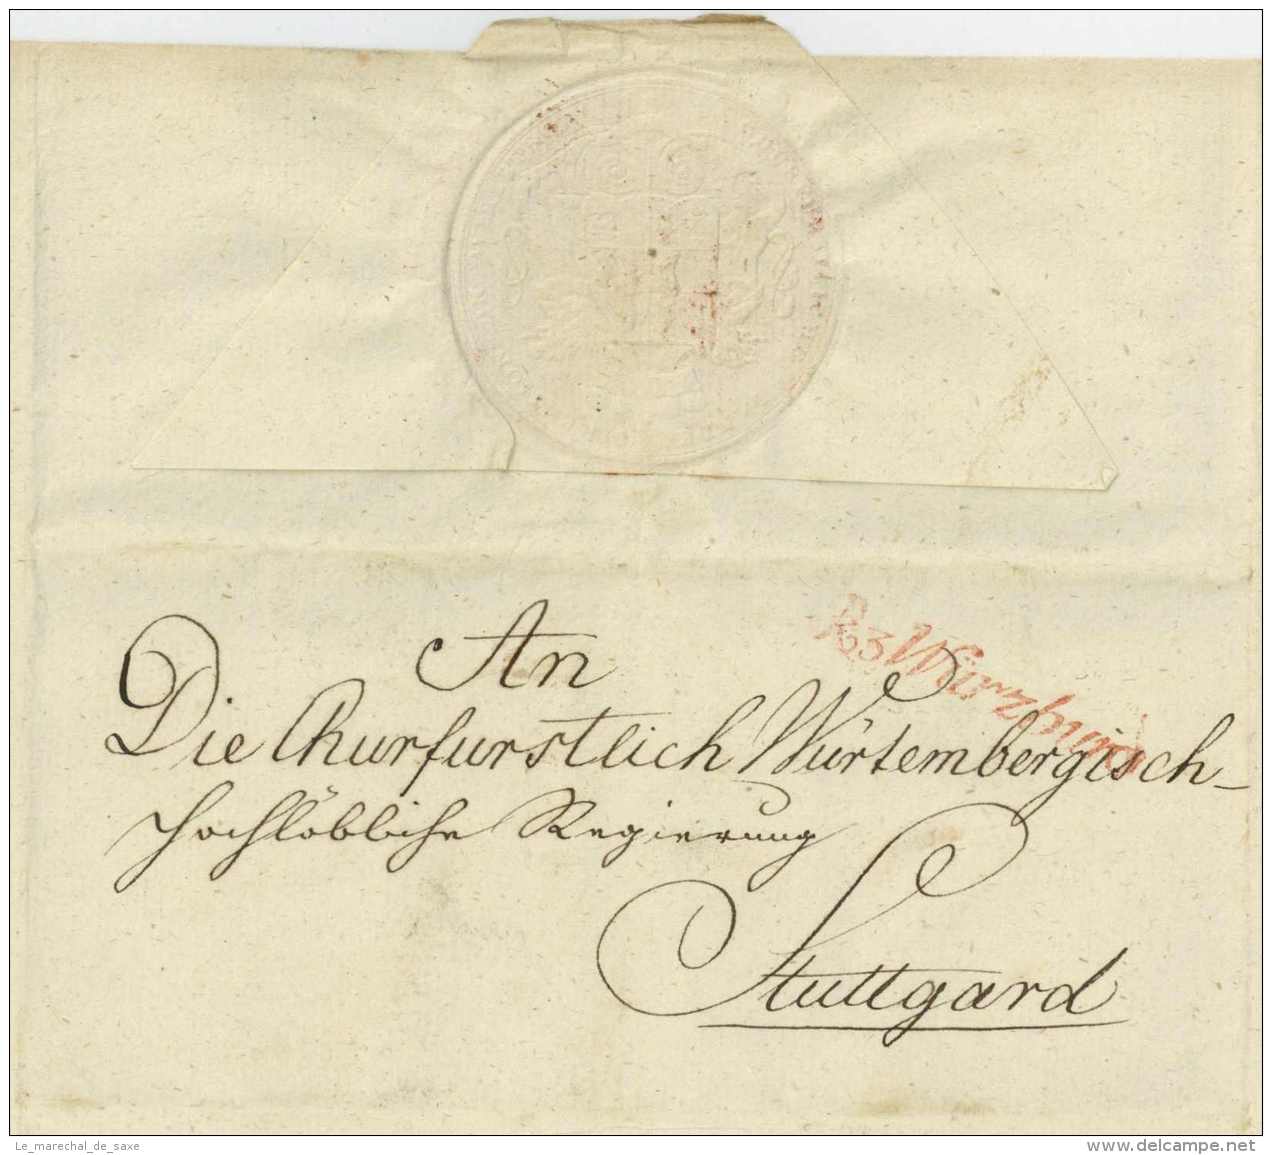 R.3 Würzburg
An
Die Churfurstlich Würtembergisch-
Hochlöbliche Regierung
Stuttgard
Le_marechal_de_saxe
www.delcampe.net